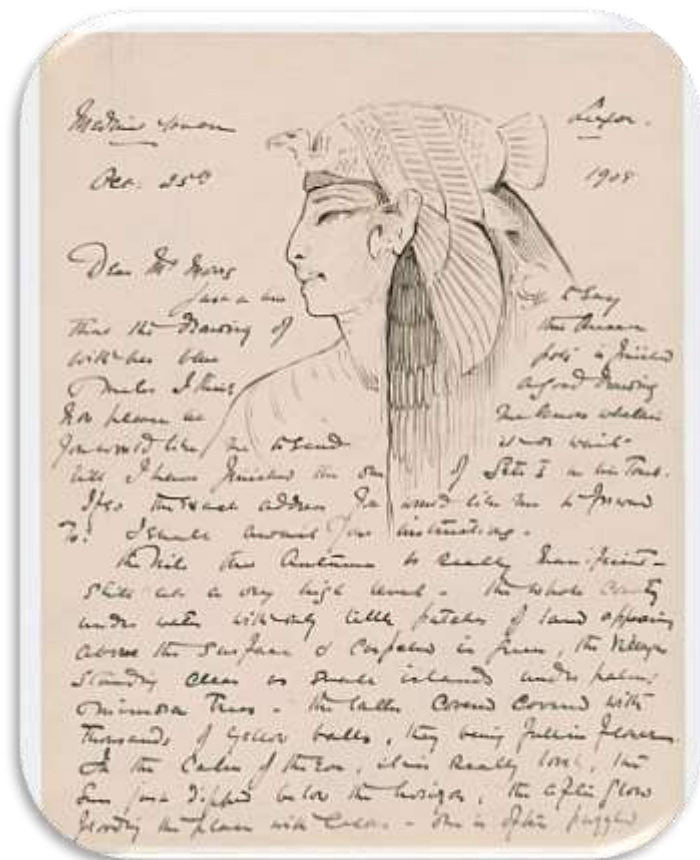 Medinet Luxor.
Oct. 25th 1908
Dear Mr
Just a line to say
that the Drawing of the Queen
with her blue is finished
I think a good Drawing
please let me know whether
you would like me to send or wait
till I have finished the one of Seti I in his Tomb.
If so the exact address you would like me to forward
to? I shall await your instructions.
the Nile this Autumn is really magnificent
still at a very high level - the whole country
under water with only little patches of land appearing
above the surface & carpeted in green, the villages
standing clear as small islands under palms
mimosa Trees - the latter covered covered with
thousands of yellow balls, they being full in flower.
In the Calm of the Eve, it is really lovely, the
Sun just dipped below the horizon, the after glow
flooding the place with Colour - one is often puzzled